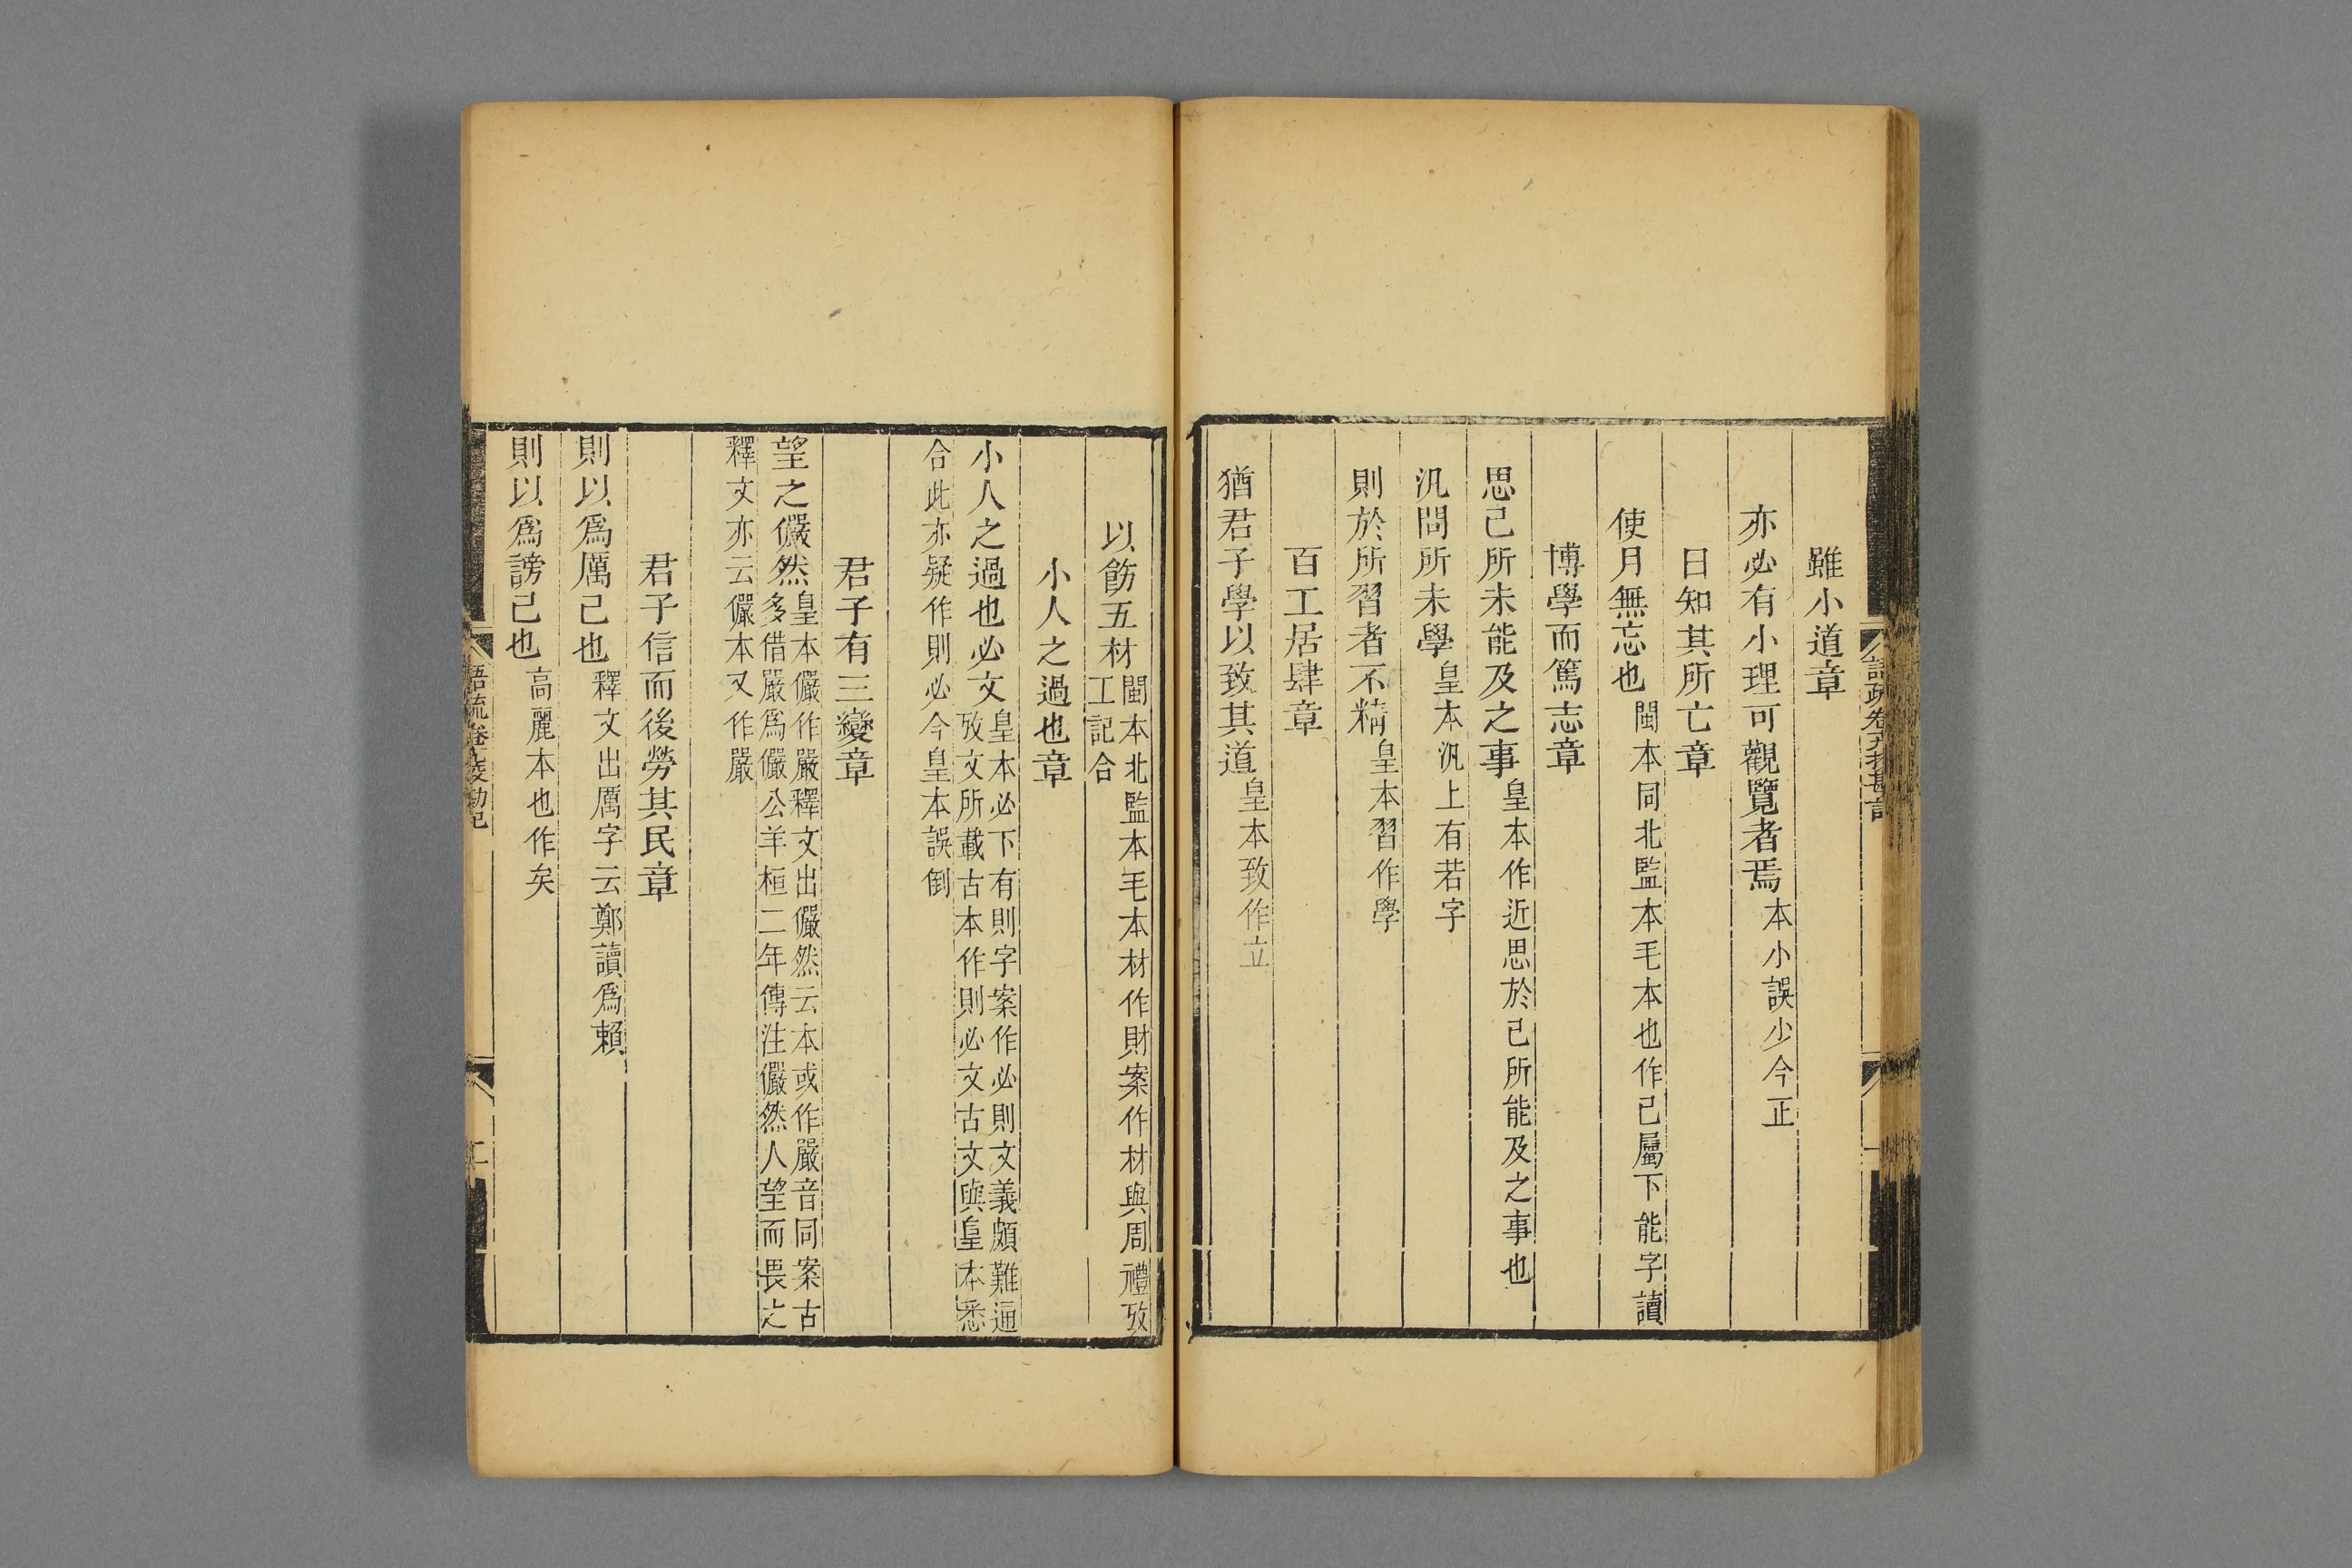 雖小道章
亦必有小理可觀覽者焉 本小誤少今正
日知其所亡章
使月無忘也 閩本同北監本毛本也作己屬下能字讀
博學而篤志章
思己所未能及之事 皇本作近思於己所能及之事也
汎問所未學 皇本汎上有若字
則於所習者不精 皇本習作學
百工居肆章
猶君子學以致其道 皇本致作立
以飭五材 閩本北監本毛本材作財案作材與周禮攷
工記合
小人之過也章
小人之過也必文 皇本必下有則字案作必則文義頗難通
攷文所載古本作則必文古文與皇本悉
合此亦疑作則必今皇本誤倒
君子有三變章
望之儼然 皇本儼作嚴釋文出儼然云本或作嚴音同案古
多借嚴爲儼公羊桓二年傳注儼然人望而畏之
釋文亦云儼本又作嚴
君子信而後勞其民章
則以爲厲己也 釋文出厲字云鄭讀爲賴
則以爲謗己也 高麗本也作矣
語疏卷十九校勘記
二